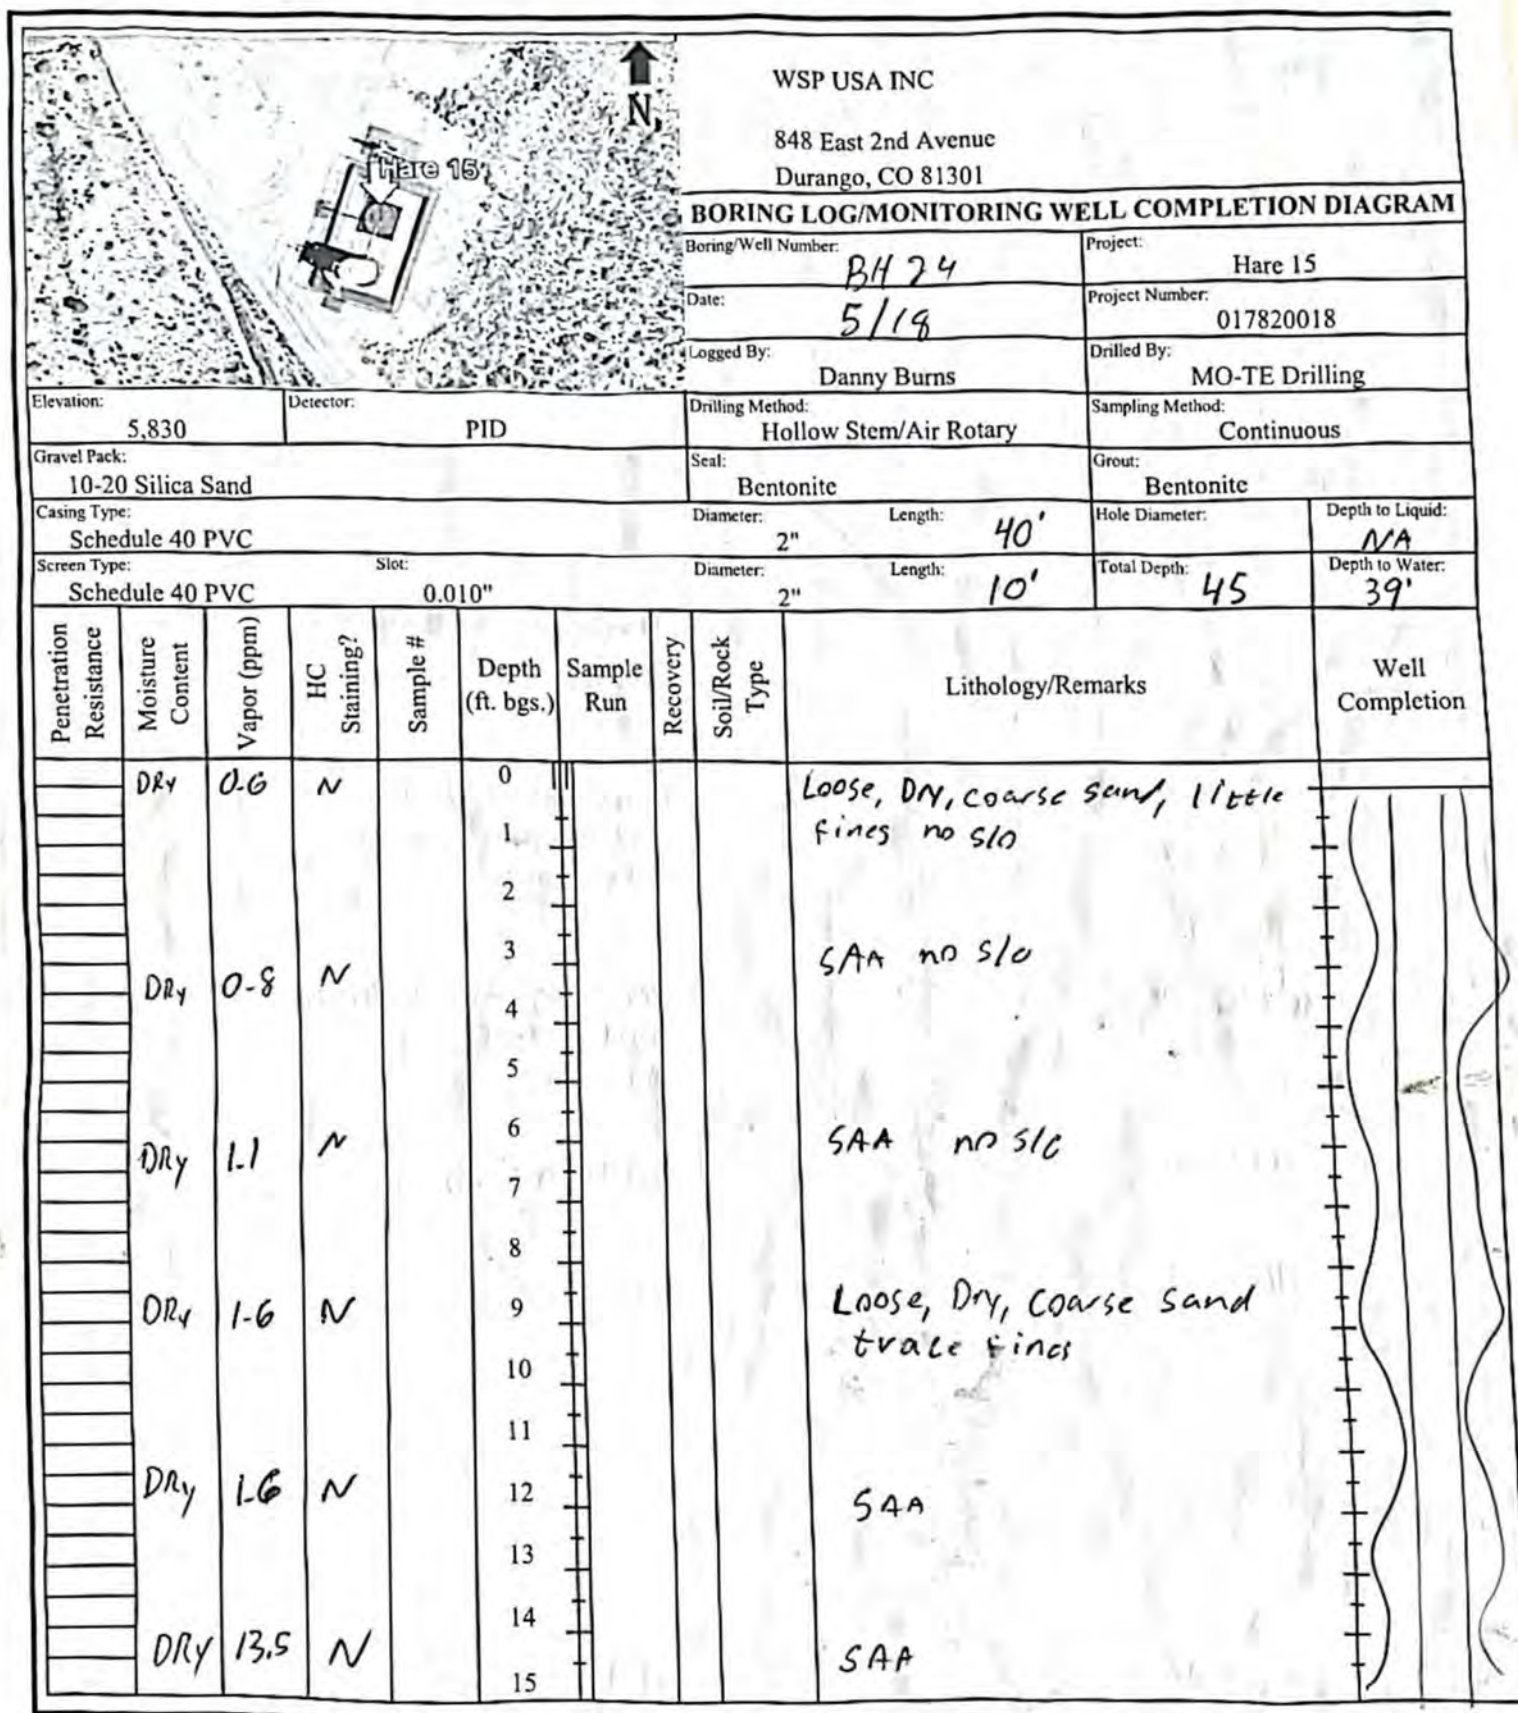 N
Hare 15
WSP USA INC
848 East 2nd Avenue
Durango, CO 81301
BORING LOG/MONITORING WELL COMPLETION DIAGRAM
Boring/Well Number: BH 24
Project: Hare 15
Date: 5/18
Project Number: 017820018
Logged By: Danny Burns
Drilled By: MO-TE Drilling
Elevation: 5,830
Detector: PID
Drilling Method: Hollow Stem/Air Rotary
Sampling Method: Continuous
Gravel Pack: 10-20 Silica Sand
Seal: Bentonite
Grout: Bentonite
Casing Type: Schedule 40 PVC
Diameter: 2"
Length: 40'
Hole Diameter:
Depth to Liquid: NA
Screen Type: Schedule 40 PVC
Slot: 0.010"
Diameter: 2"
Length: 10'
Total Depth: 45
Depth to Water: 39'
Penetration Resistance
Moisture Content
Vapor (ppm)
HC Staining?
Sample #
Depth (ft. bgs.)
Sample Run
Recovery
Soil/Rock Type
Lithology/Remarks
Well Completion
DRY 0.6 N 0 Loose, Dry, coarse sand, little
1 fines no s/o
2
3 SAA no s/o
DRy 0.8 N
4
5
6 SAA no s/o
DRy 1.1 N
7
8
DRy 1.6 N 9 Loose, Dry, coarse sand
trace fines
10
11
DRy 1.6 N 12 SAA
13
14
DRY 13.5 N SAA
15